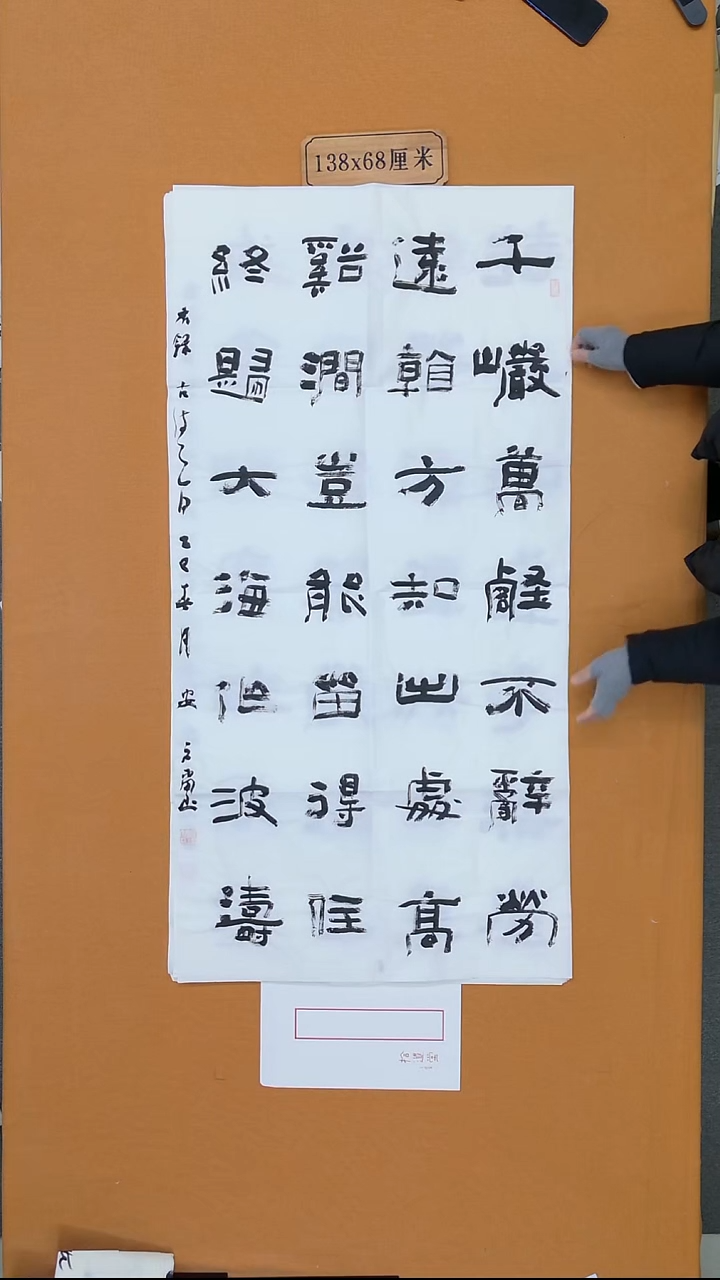 138x68厘米
千巖萬壑不辭勞
遠看方知出處高
谿澗豈能留得住
終歸大海作波濤
錄古诗乙巳春月